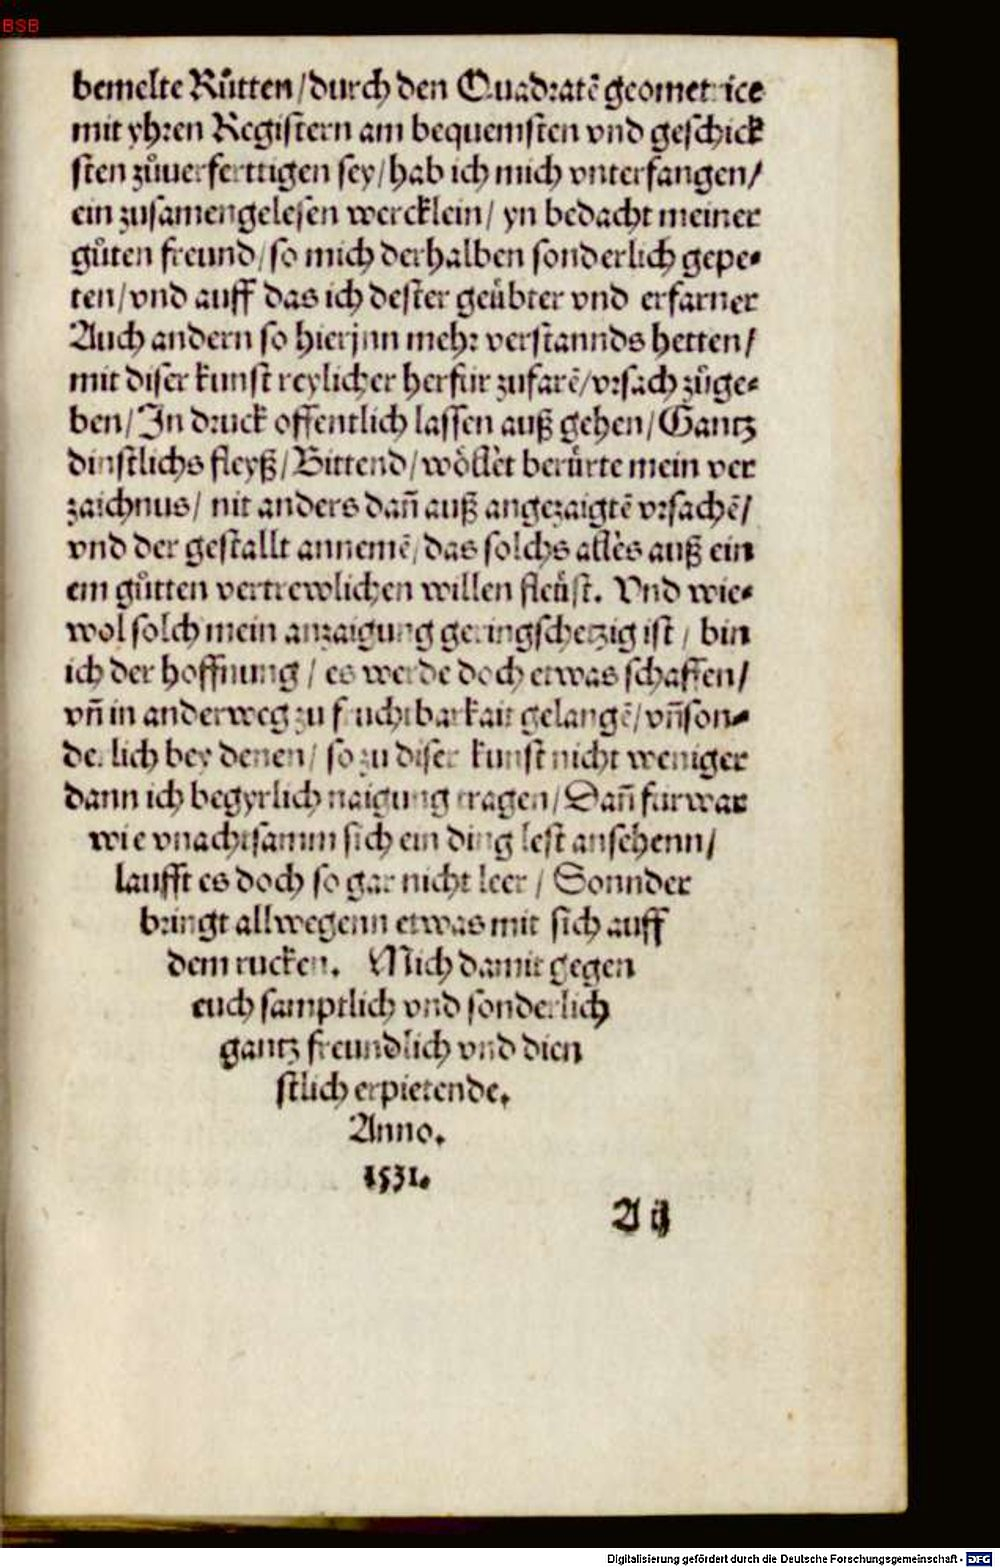 BSB
bemelte Růtten/durch den Quadratē geometrice
mit yhren Registern am bequemsten vnd geschick
sten zůuerferttigen sey/hab ich mich vnterfangen/
ein zusamengelesen wercklein/ yn bedacht meiner
gůten freund/so mich derhalben sonderlich gepe-
ten/vnd auff das ich dester geübter vnd erfarner
Auch andern so hierjnn mehr verstannds hetten/
mit diser kunst reylicher herfür zufarē/vrsach zůge-
ben/In druck offentlich lassen auß gehen/Gantz
dinstlichs fleyß/Bittend/wöllēt berürte mein ver
zaichnus/ nit anders dañ auß angezaigtē vrsachē/
vnd der gestallt annemē/das solchs alles auß ein
em gůtten vertrewlichen willen fleüst. Vnd wie-
wol solch mein anzaigung geringschetzig ist/ bin
ich der hoffnung/ es werde doch etwas schaffen/
vñ in anderweg zu fruchtbarkait gelangē/vñson-
derlich bey denen/ so zu diser kunst nicht weniger
dann ich begyrlich naigung tragen/Dañ furwar
wie vnachtsamm sich ein ding lest ansehenn/
laufft es doch so gar nicht leer/ Sonnder
bringt allwegenn etwas mit sich auff
dem rucken. Mich damit gegen
euch samptlich vnd sonderlich
gantz freundlich vnd dien
stlich erpietende.
Anno.
1531.
A ij
Digitalisierung gefördert durch die Deutsche Forschungsgemeinschaft - DFG